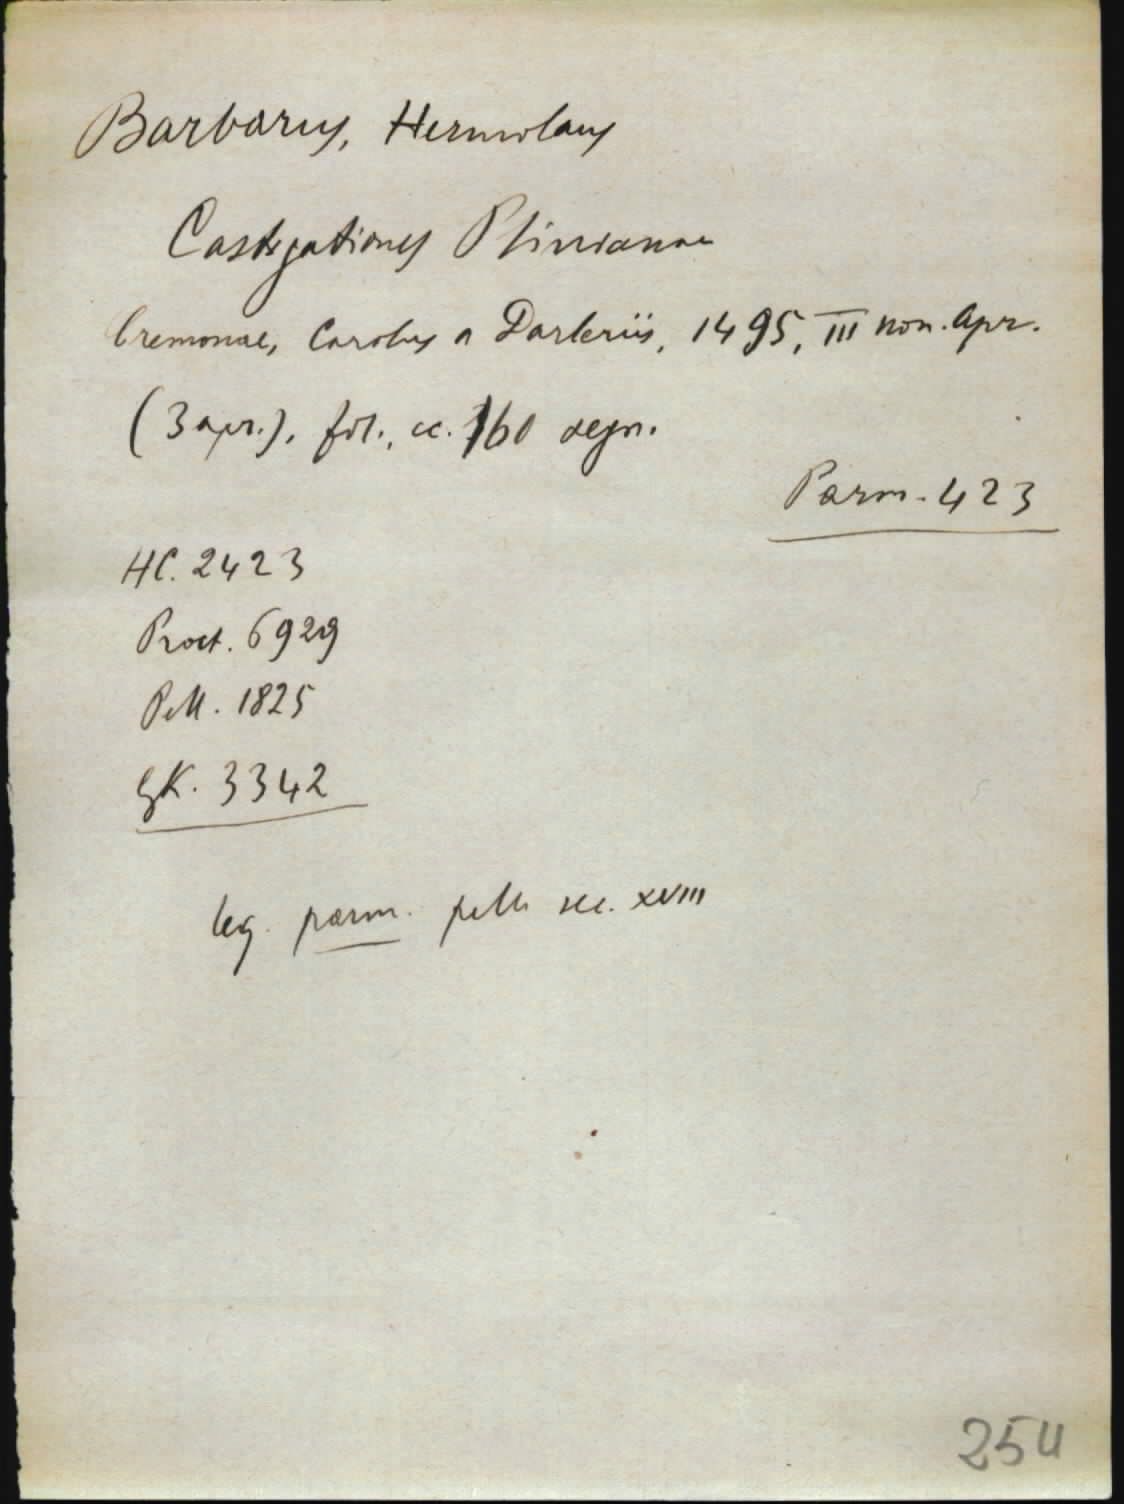 Barbarus, Hermolaus
Castigationes Plinianae
Cremonae, Carolus a Darleriis, 1495, III non. Apr.
(3 apr.), fol., cc. 160 segn.
Parm. 423
HC. 2423
Proct. 6929
Pell. 1825
GK. 3342
leg. parm. pelle sec. XVIII
254